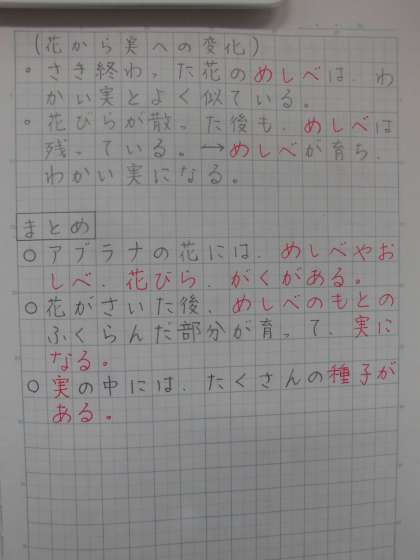 (花から実への変化)
・さき終わった花のめしべは、わ
かい実とよく似ている。
・花びらが散った後も、めしべは
残っている。→めしべが育ち、
わかい実になる。
まとめ
○アブラナの花には、めしべやお
しべ、花びら、がくがある。
○花がさいた後、めしべのもとの
ふくらんだ部分が育って、実に
なる。
○実の中には、たくさんの種子が
ある。